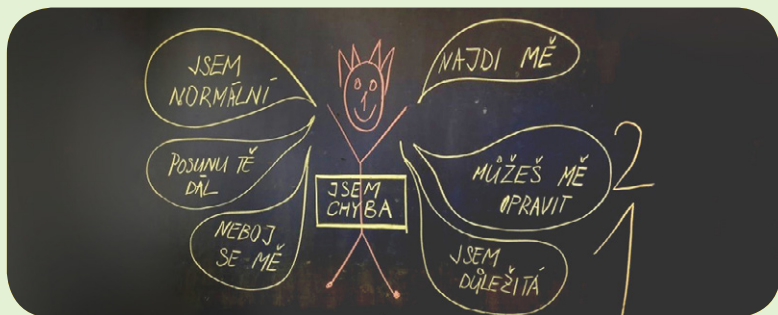 JSEM
NORMÁLNÍ
POSUNU TĚ
DÁL
NEBOJ
SE MĚ
JSEM
CHYBA
NAJDI MĚ
MŮŽEŠ MĚ
OPRAVIT
JSEM
DŮLEŽITÁ
2
1